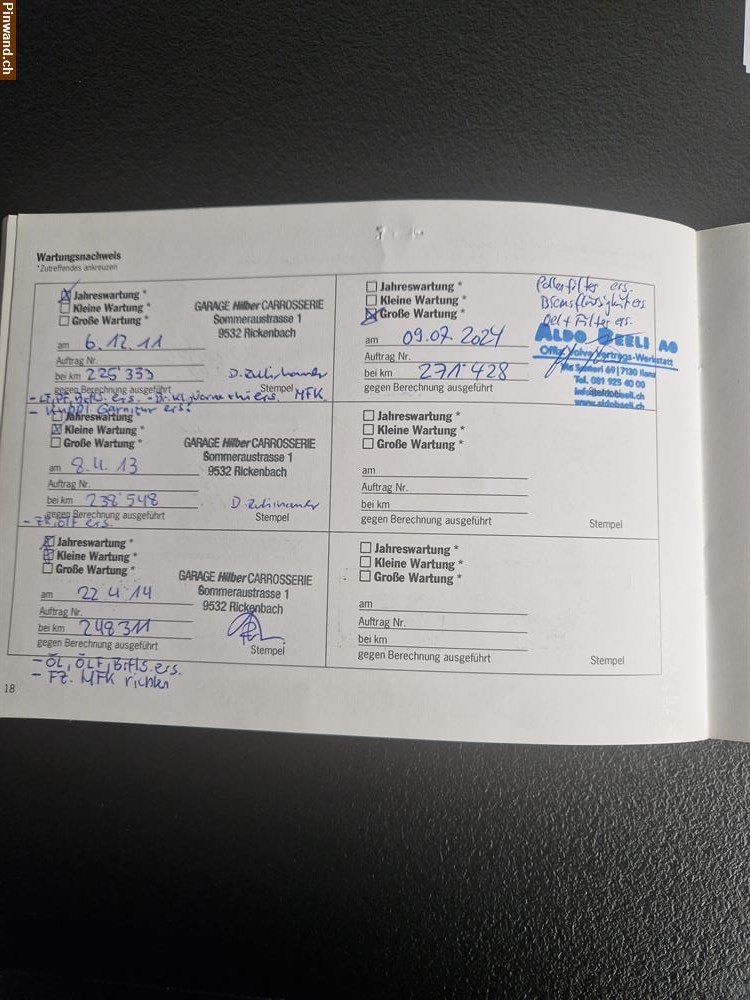 Pinwand.ch
Wartungsnachweis
*Zutreffendes ankreuzen
Jahreswartung *
Kleine Wartung *
Große Wartung *
am 6.12.11
Auftrag Nr.
bei km 225'353
gegen Berechnung ausgeführt
GARAGE Hilber CARROSSERIE
Sommeraustrasse 1
9532 Rickenbach
Stempel
ers. MFK.
- Kuppl. Garnitur ers.
Jahreswartung *
Kleine Wartung *
Große Wartung *
am 8.11.13
Auftrag Nr.
bei km 238'548
gegen Berechnung ausgeführt
GARAGE Hilber CARROSSERIE
Sommeraustrasse 1
9532 Rickenbach
Stempel
ers.
Jahreswartung *
Kleine Wartung *
Große Wartung *
am 22.4.14
Auftrag Nr.
bei km 248'311
gegen Berechnung ausgeführt
GARAGE Hilber CARROSSERIE
Sommeraustrasse 1
9532 Rickenbach
Stempel
- ÖL, ÖLF, Brfls. ers.
- FZ. MFK richten
18
Jahreswartung *
Kleine Wartung *
Große Wartung *
am 09.07.2024
Auftrag Nr.
bei km 271'428
gegen Berechnung ausgeführt
Pollenfilter ers.
Bremsflüssigkeit ers
Oel + Filter ers.
ALDO BEELI AG
Offiz. Volvo Vertrags-Werkstatt
69 | 7130 Ilanz
Tel. 081 925 40 00
info@aldobeeli.ch
www.aldobeeli.ch
Jahreswartung *
Kleine Wartung *
Große Wartung *
am
Auftrag Nr.
bei km
gegen Berechnung ausgeführt
Stempel
Jahreswartung *
Kleine Wartung *
Große Wartung *
am
Auftrag Nr.
bei km
gegen Berechnung ausgeführt
Stempel